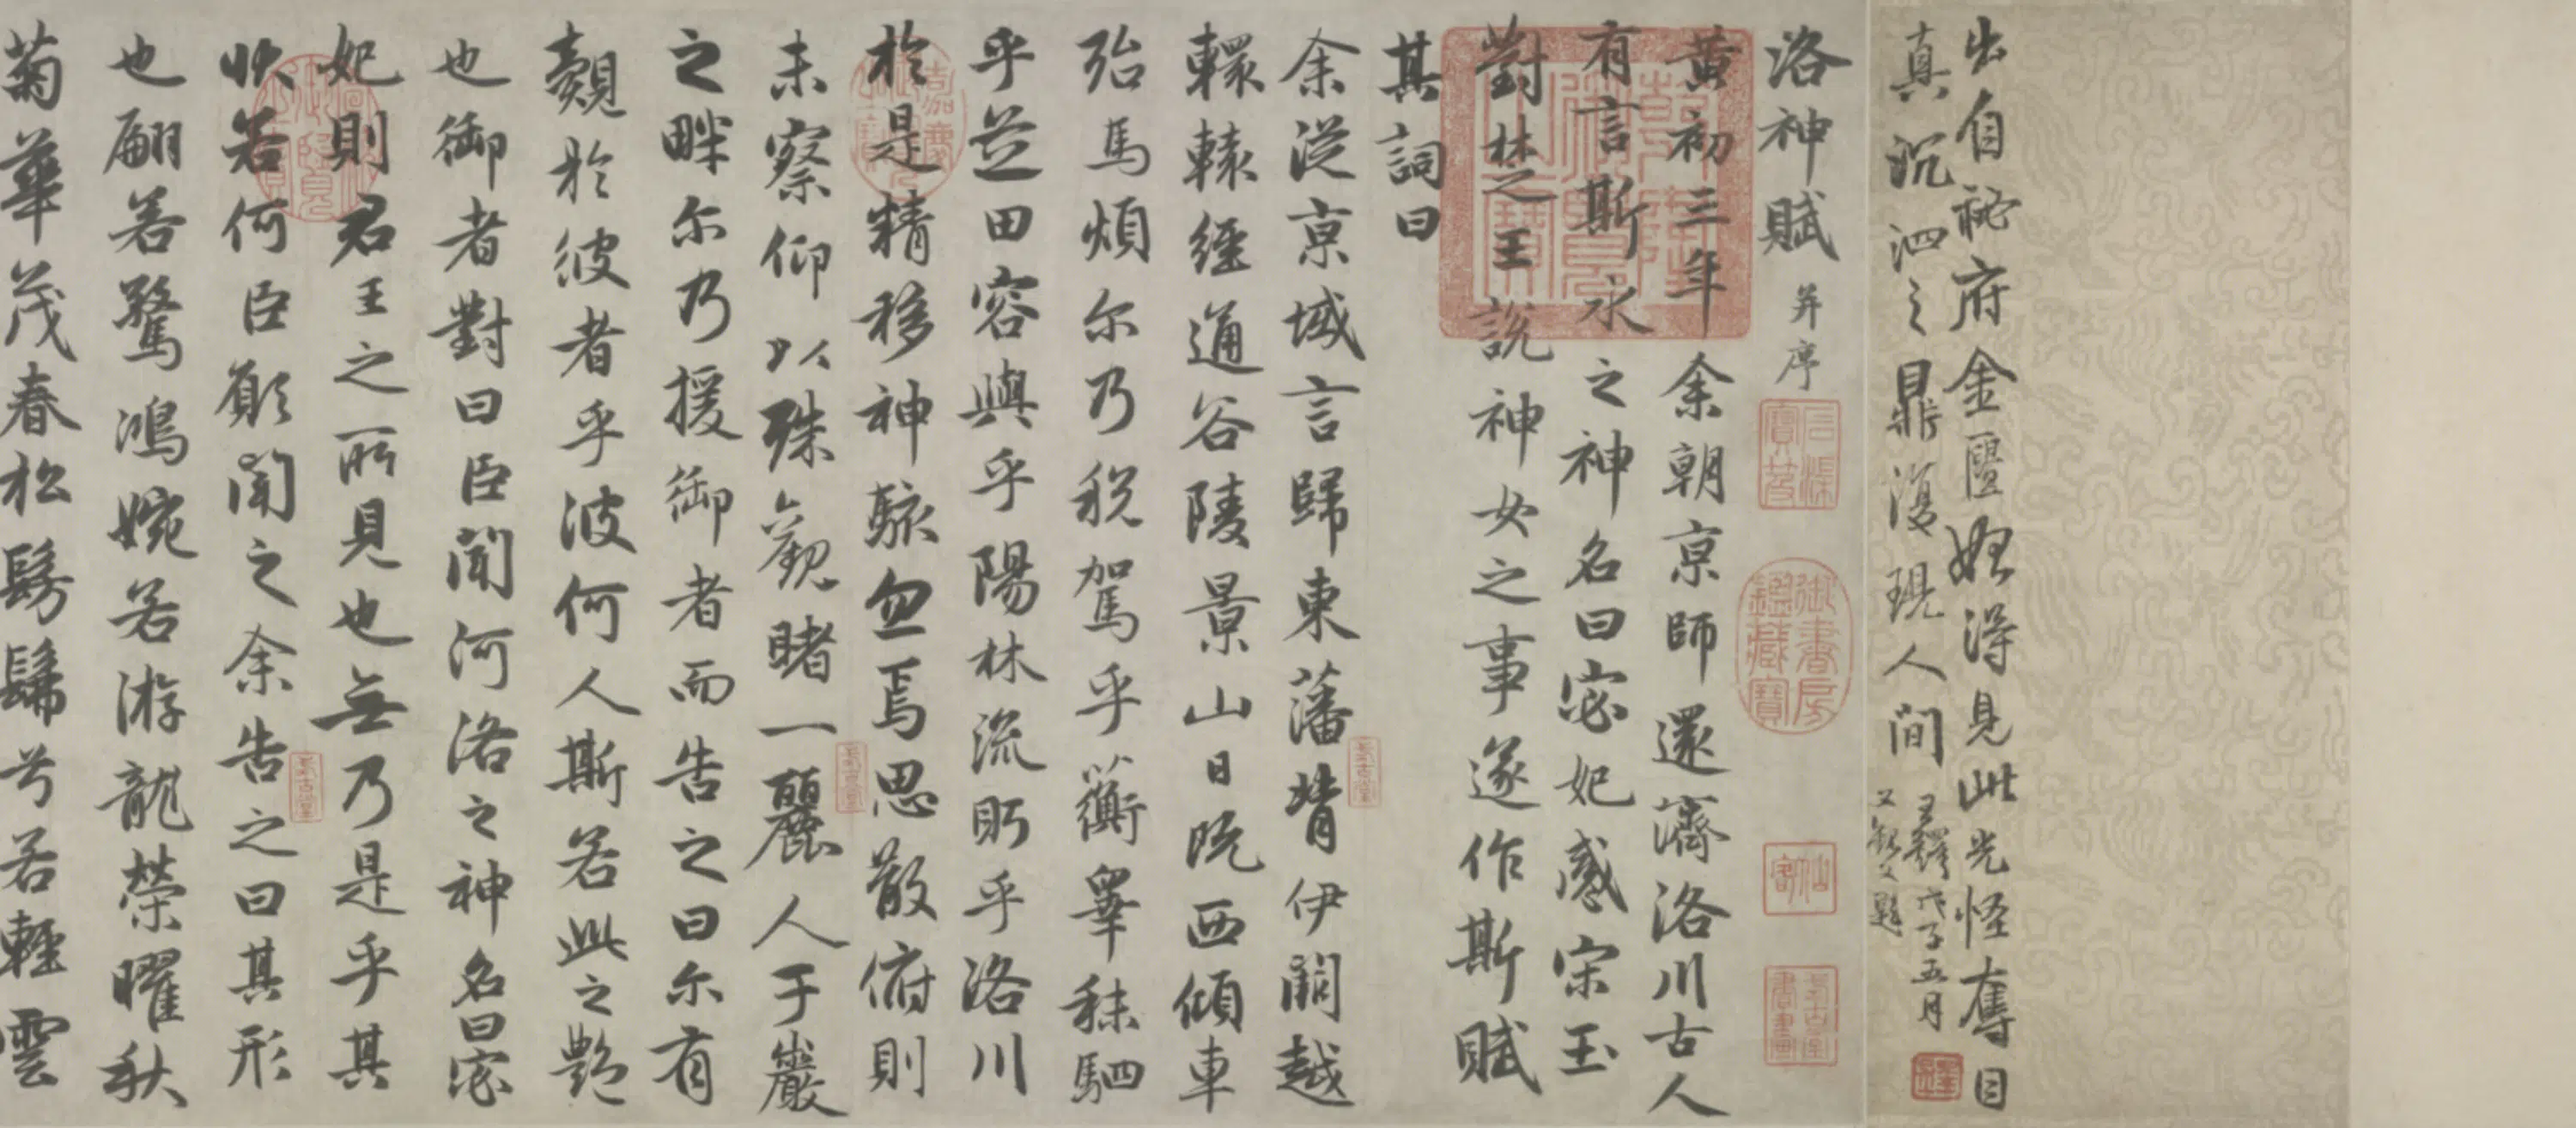 出自祕府金匱始得見此光怪奪目
真沉泗之鼎復現人間
王鐸戊子五月
洛神賦 并序
御書房鑑藏寶
黄初三年余朝京師還濟洛川古人
有言斯水之神名曰宓妃感宋玉
對楚王說神女之事遂作斯賦
其詞曰
余從京域言歸東藩背伊闕越
轘轅經通谷陵景山日既西傾車
殆馬煩尔乃税駕乎蘅皋秣駟
乎芝田容與乎陽林流眄乎洛川
於是精移神駭忽焉思散俯則
未察仰以殊觀睹一麗人于巖
之畔尔乃援御者而告之曰尔有
覿於彼者乎彼何人斯若此之艷
也御者對曰臣聞河洛之神名曰宓
妃則君王之所見也無乃是乎其
狀若何臣願聞之余告之曰其形
也翩若驚鴻婉若游龍榮曜秋
菊華茂春松髣髴兮若輕雲